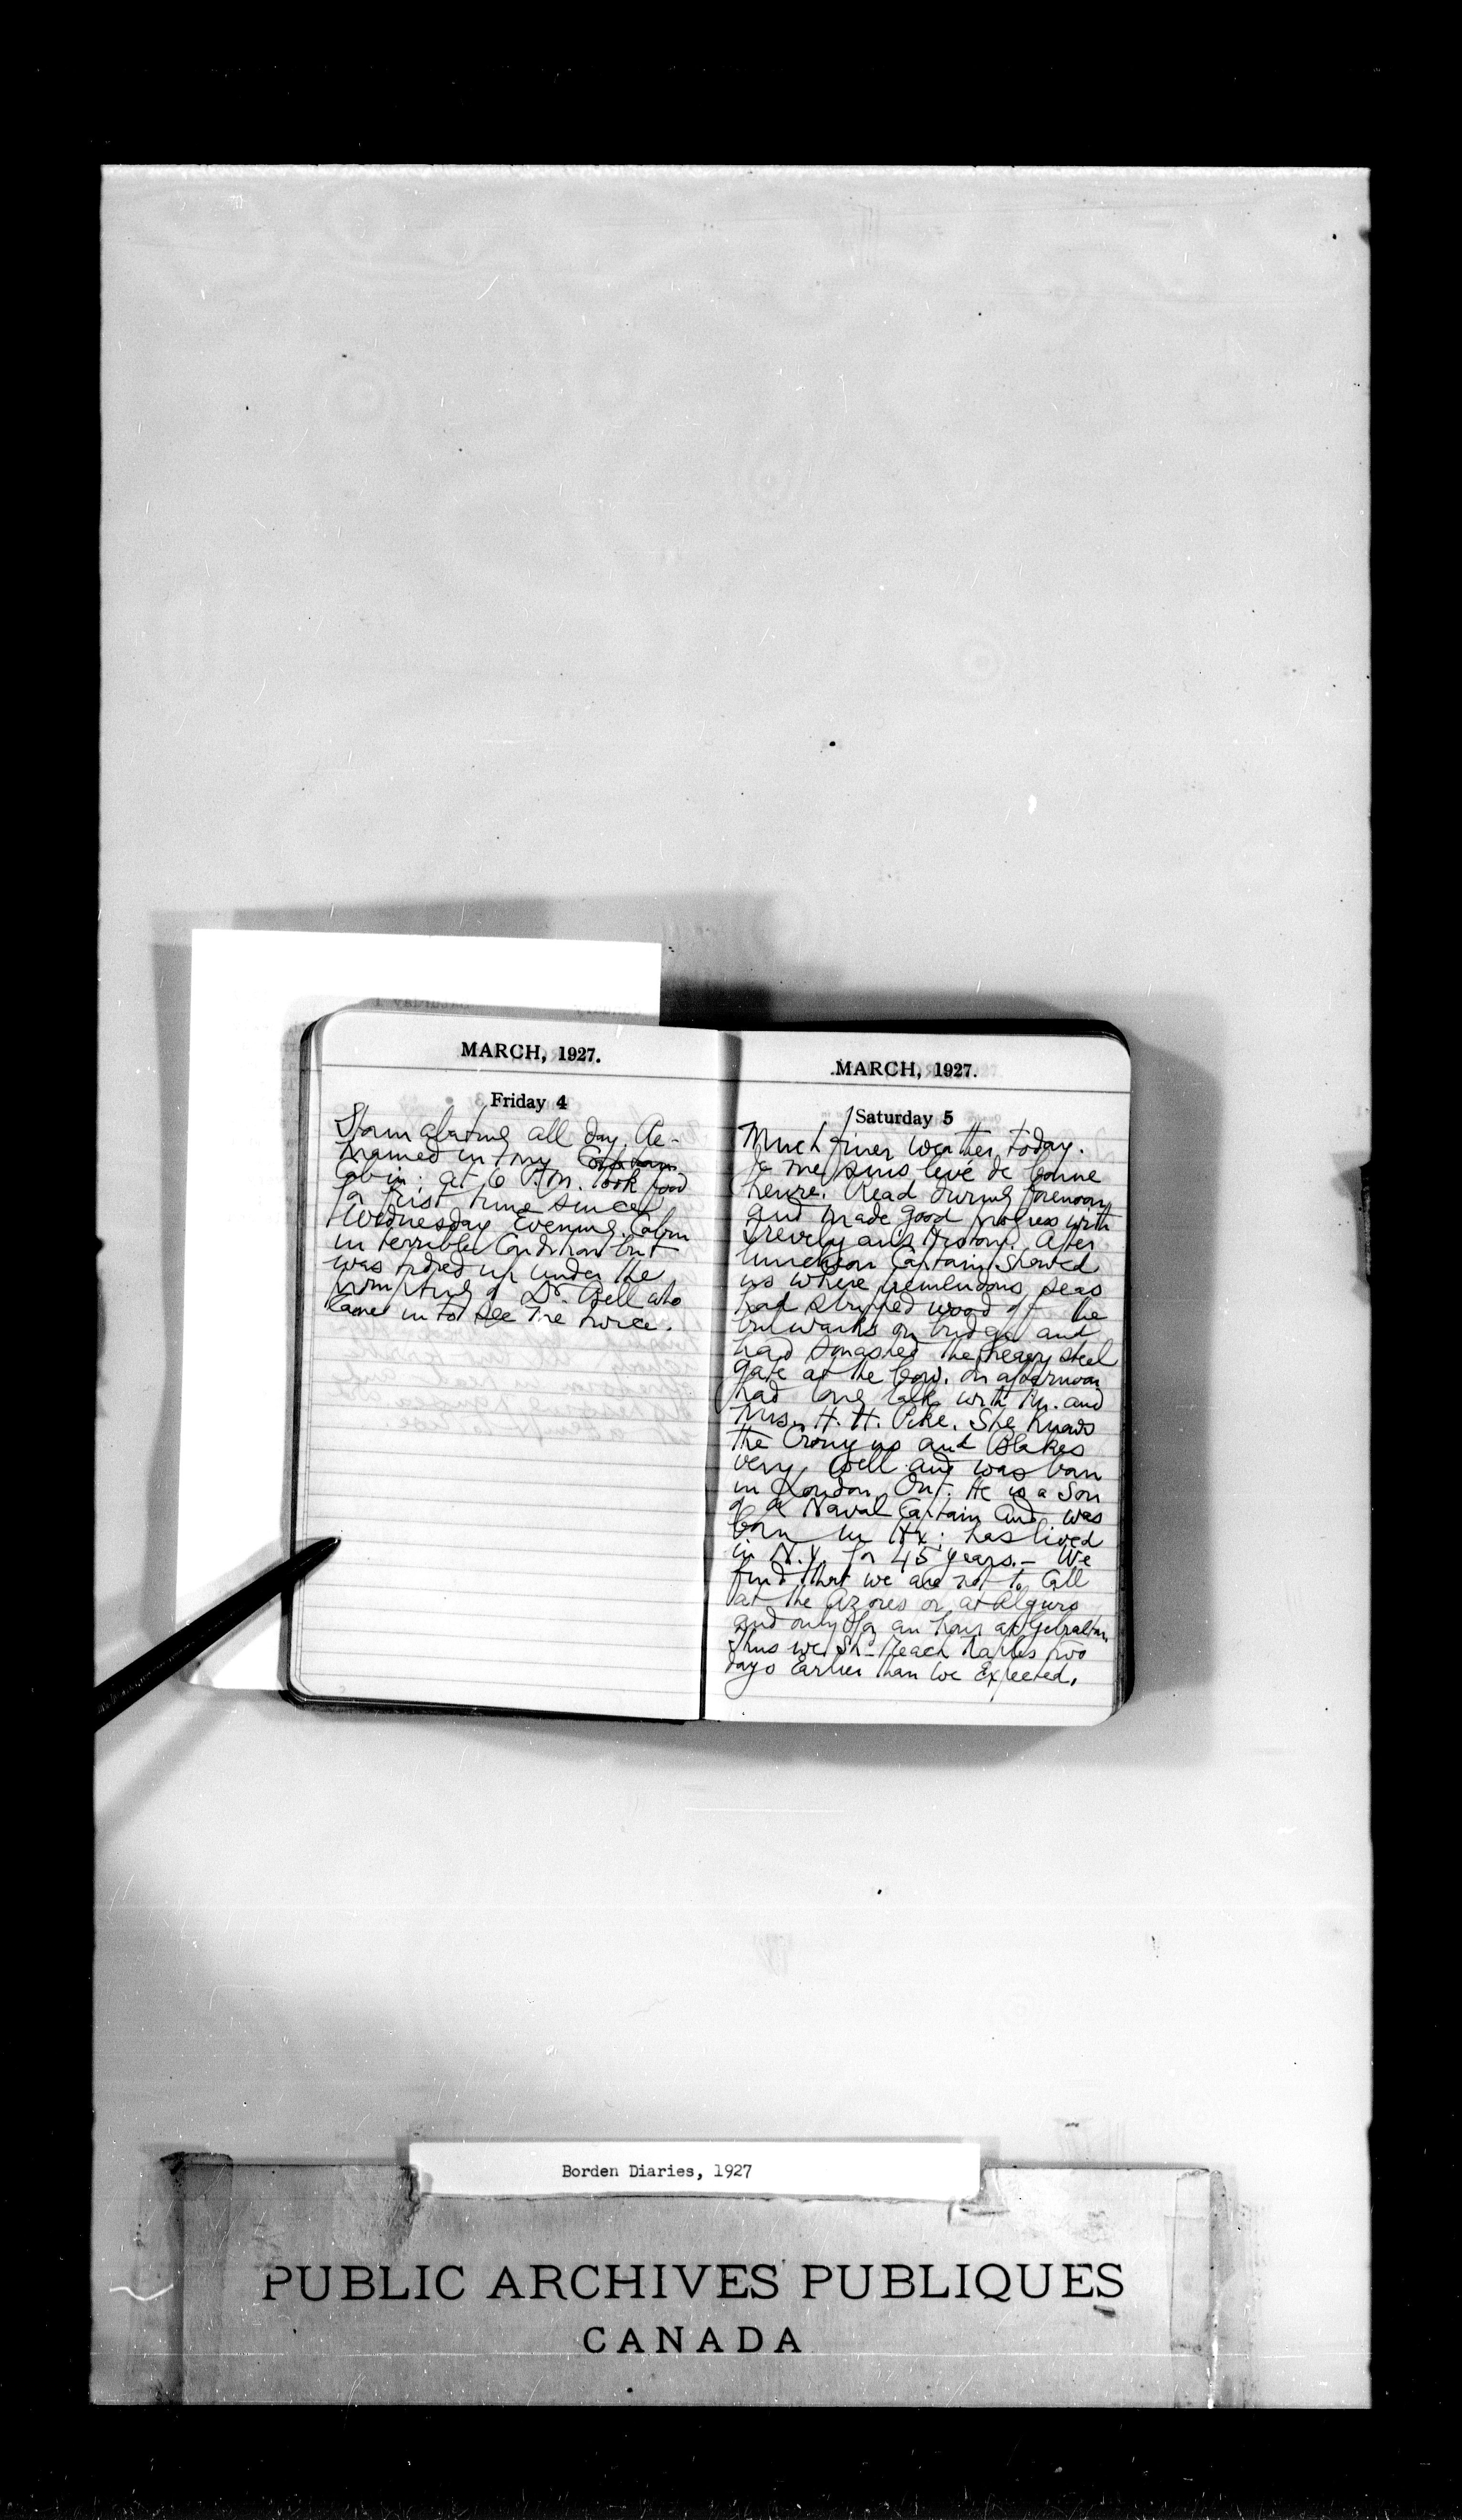 MARCH, 1927.
Friday 4
Storm abating all day. Re-
mained in my
Cabin. At 6 P.M. took food
for first time since
Wednesday Evening. Cabin
in terrible Condition but
was tidied up under the
prompting of Dr. Bell who
came in to see me twice.
MARCH, 1927.
Saturday 5
Much finer weather today.
Je me suis levé de bonne
heure. Read during forenoon
and made good progress with
Trevelyan's History. After
luncheon Captain showed
us where tremendous seas
had stripped wood off the
bulwarks on bridge and
had smashed the heavy steel
gate at the bow. In afternoon
had long talk with Mr. and
Mrs. H. H. Pike. She knows
the Cronyns and Blakes
very well and was born
in London, Ont. He is a Son
of a Naval Captain and was
born in Hx: has lived
in N.Y. for 45 years. — We
find that we are not to Call
at the Azores or at Algiers
and only for an hour at Gibraltar.
Thus we sh. reach Naples two
days Earlier than we Expected.
Borden Diaries, 1927
PUBLIC ARCHIVES PUBLIQUES
CANADA